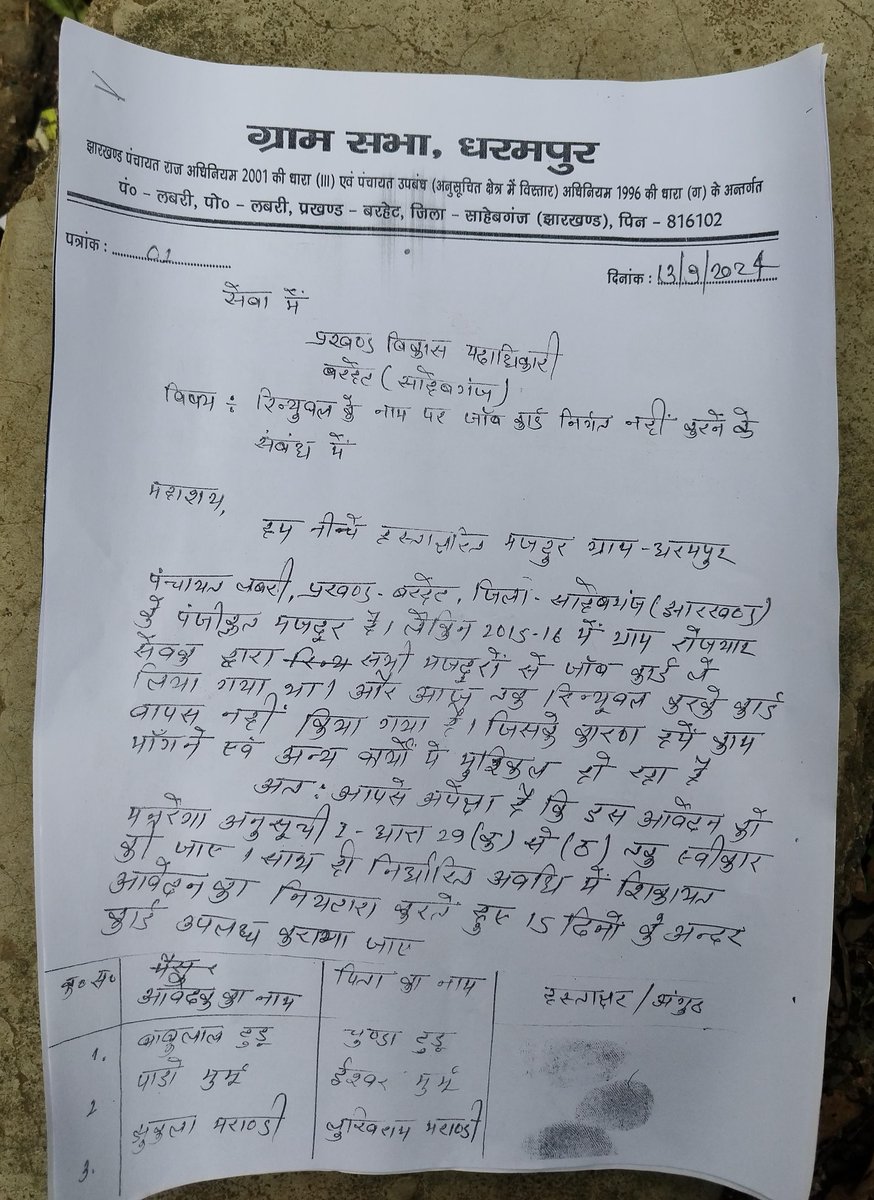 ग्राम सभा, धरमपुर
झारखण्ड पंचायत राज अधिनियम 2001 की धारा (III) एवं पंचायत उपबंध (अनुसूचित क्षेत्र में विस्तार) अधिनियम 1996 की धारा (ग) के अन्तर्गत
पं० - लबरी, पो० - लबरी, प्रखण्ड - बरहेट, जिला - साहेबगंज (झारखण्ड), पिन - 816102
पत्रांक : 01
दिनांक : 13/9/2024
सेवा में
प्रखण्ड विकास पदाधिकारी
बरहेट (साहेबगंज)
विषय : रिन्युवल के नाम पर जॉब कार्ड निर्गत नहीं करने के
संबंध में
महाशय,
हम नीचे हस्ताक्षरित मजदुर ग्राम-धरमपुर
पंचायत लबरी, प्रखण्ड-बरहेट, जिला-साहेबगंज (झारखण्ड)
के पंजीकृत मजदूर है। लेकिन 2015-16 में ग्राम रोजगार
सेवक द्वारा सभी मजदुरों से जॉब कार्ड ले
लिया गया था। और आज तक रिन्यूवल करके कार्ड
वापस नहीं किया गया है। जिसके कारण हमें काम
माँगने एवं अन्य कार्यों में मुश्किल हो रहा है
अत: आपसे अपेक्षा है कि इस आवेदन को
मनरेगा अनुसूची 2-धारा 29 (क) से (ठ) तक स्वीकार
की जाए। साथ ही निर्धारित अवधि में शिकायत
आवेदन का निपटारा करते हुए 15 दिनों के अन्दर
कार्ड उपलब्ध कराया जाए
क्र० स० आवेदक का नाम पिता का नाम हस्ताक्षर/अंगुठा
1. बाबुलाल टुडू चुण्डा टुडू
2 पाडो मुर्मू ईश्वर मुर्मू
3. झुकला मराण्डी लुखिराम मराण्डी